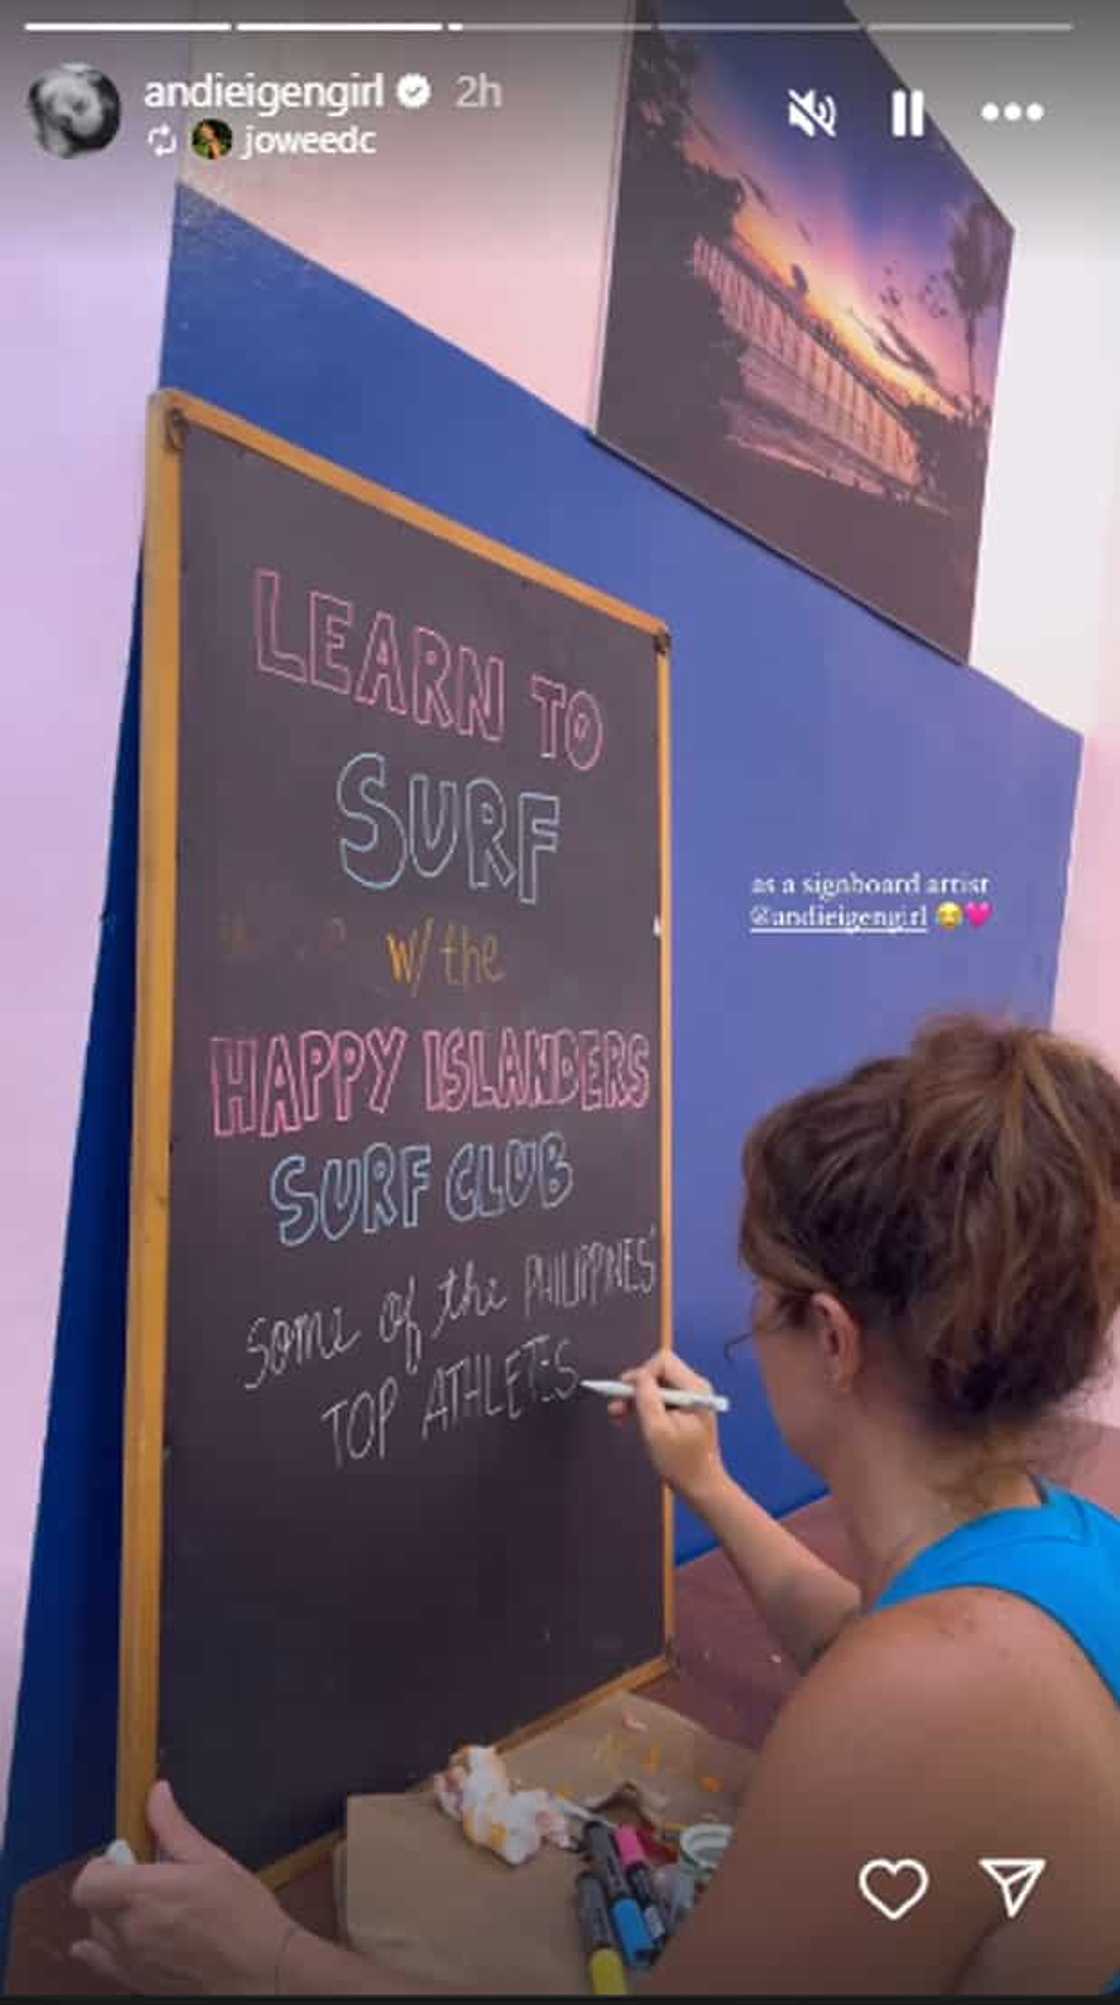 andieigengirl 2h
joweedc
LEARN TO
SURF
w/ the
HAPPY ISLANDERS
SURF CLUB
some of the PHILIPPINES'
TOP ATHLETES
as a signboard artist
@andieigengirl 😂💖